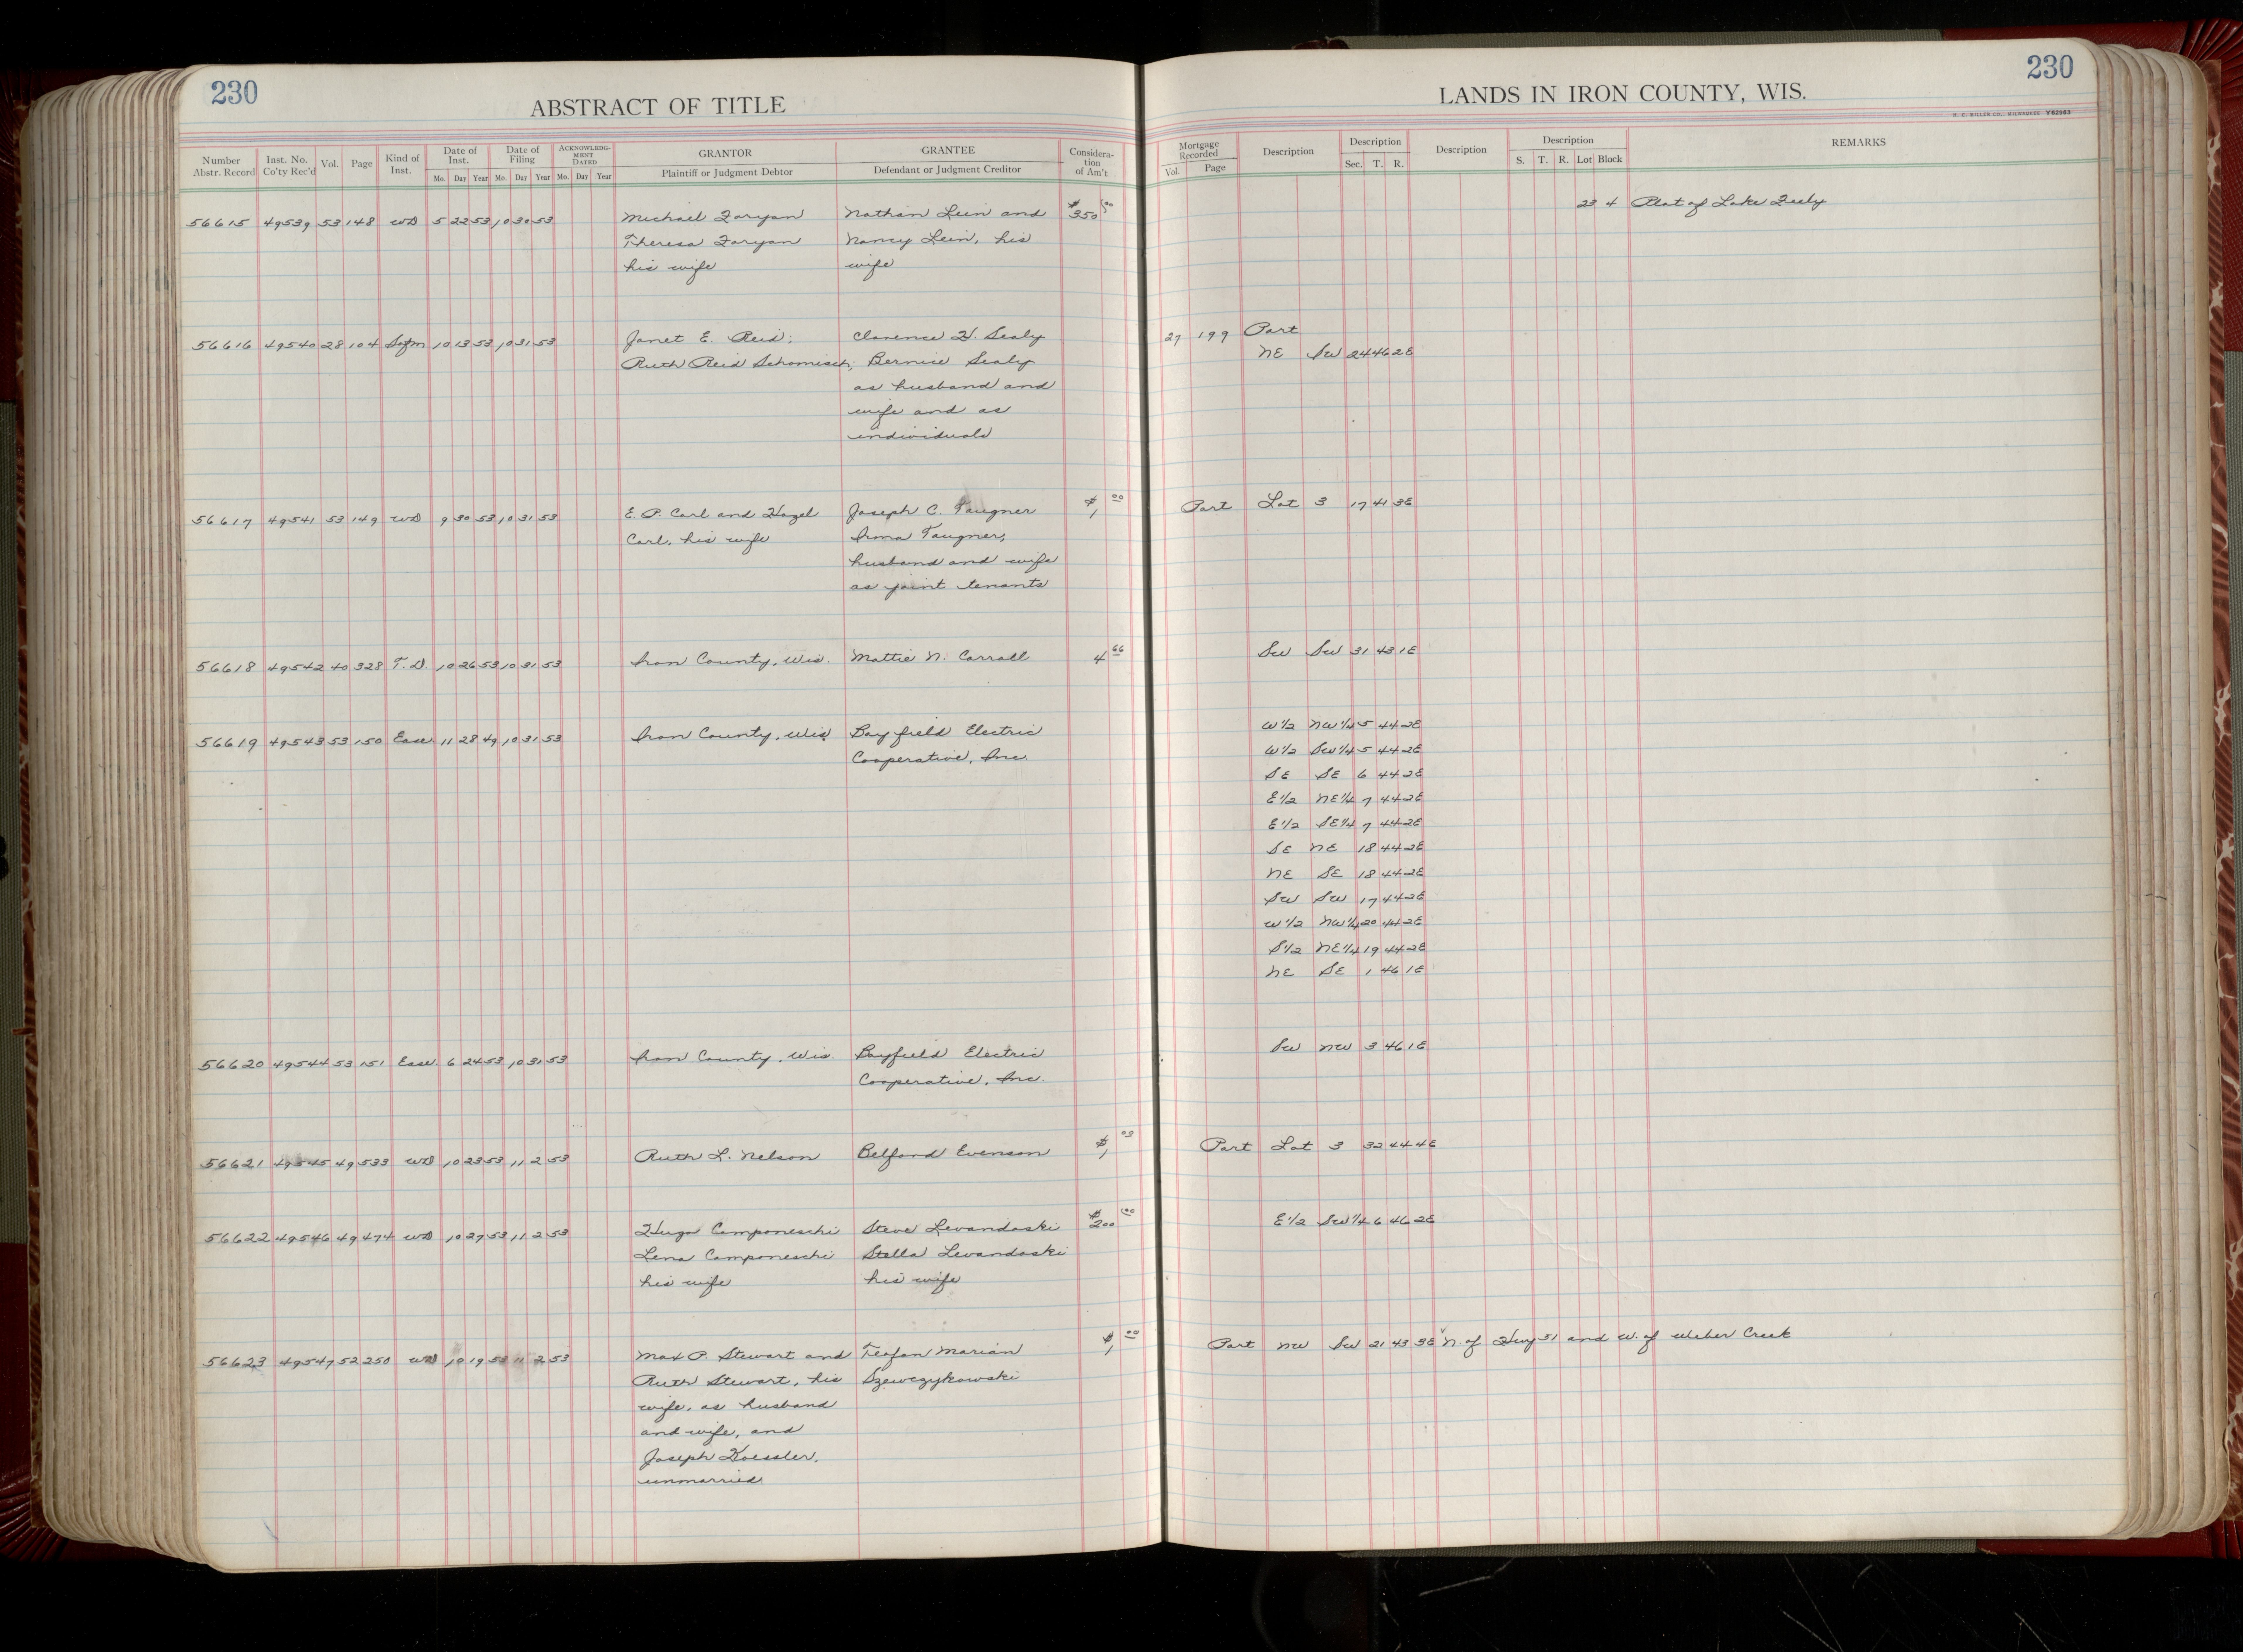 230
ABSTRACT OF TITLE
Number Abstr. Record Inst. No. Co'ty Rec'd Vol. Page Kind of Inst. Date of Inst. Mo. Day Year Date of Filing Mo. Day Year ACKNOWLEDGMENT DATED Mo. Day Year GRANTOR Plaintiff or Judgment Debtor GRANTEE Defendant or Judgment Creditor Considera-tion of Am't
56615 49539 53 148 WD 5 22 53 10 30 53 Michael Zaryan Nathan Lein and $350 00
Theresa Zaryan Nancy Lein, his
his wife wife
56616 49540 28 104 Safm 10 13 53 10 31 53 Janet E. Reid; Clarence H. Sealy
Ruth Reid Schomisch; Bernice Sealy
as husband and
wife and as
individuals
56617 49541 53 149 WD 9 30 53 10 31 53 E. P. Carl and Hazel Joseph C. Taugner $1 00
Carl, his wife Irma Taugner,
husband and wife
as joint tenants
56618 49542 40 328 T.D. 10 26 53 10 31 53 Iron County, Wis. Mattie N. Carroll 4 66
56619 49543 53 150 Ease 11 28 49 10 31 53 Iron County, Wis. Bayfield Electric
Cooperative, Inc.
56620 49544 53 151 Ease. 6 24 53 10 31 53 Iron County, Wis. Bayfield Electric
Cooperative, Inc.
56621 49545 49 533 WD 10 23 53 11 2 53 Ruth L. Nelson Belford Evenson $1 03
56622 49546 49 474 WD 10 27 53 11 2 53 Hugo Camponeschi Steve Levandoski $200 00
Lena Camponeschi Stella Levandoski
his wife his wife
56623 49547 52 250 WD 10 19 53 11 2 53 Max P. Stewart and Teofan Marian $1 00
Ruth Stewart, his Szewczykowski
wife, as husband
and wife, and
Joseph Koessler,
unmarried
230
LANDS IN IRON COUNTY, WIS.
H. C. MILLER CO., MILWAUKEE Y62963
Mortgage Recorded Vol. Page Description Description Sec. T. R. Description Description S. T. R. Lot Block REMARKS
23 4 Plat of Lake
27 199 Part
NE SW 24 46 2E
Part Lot 3 17 41 3E
SW SW 31 43 1E
W 1/2 NW 1/4 5 44 2E
W 1/2 SW 1/4 5 44 2E
SE SE 6 44 2E
E 1/2 NE 1/4 7 44 2E
E 1/2 SE 1/4 7 44 2E
SE NE 18 44 2E
NE SE 18 44 2E
SW SW 17 44 2E
W 1/2 NW 1/4 20 44 2E
S 1/2 NE 1/4 19 44 2E
NE SE 1 46 1E
SW NW 3 46 1E
Part Lot 3 32 44 4E
E 1/2 SW 1/4 6 46 2E
Part NW SW 21 43 3E N. of Hwy 51 and W. of Weber Creek